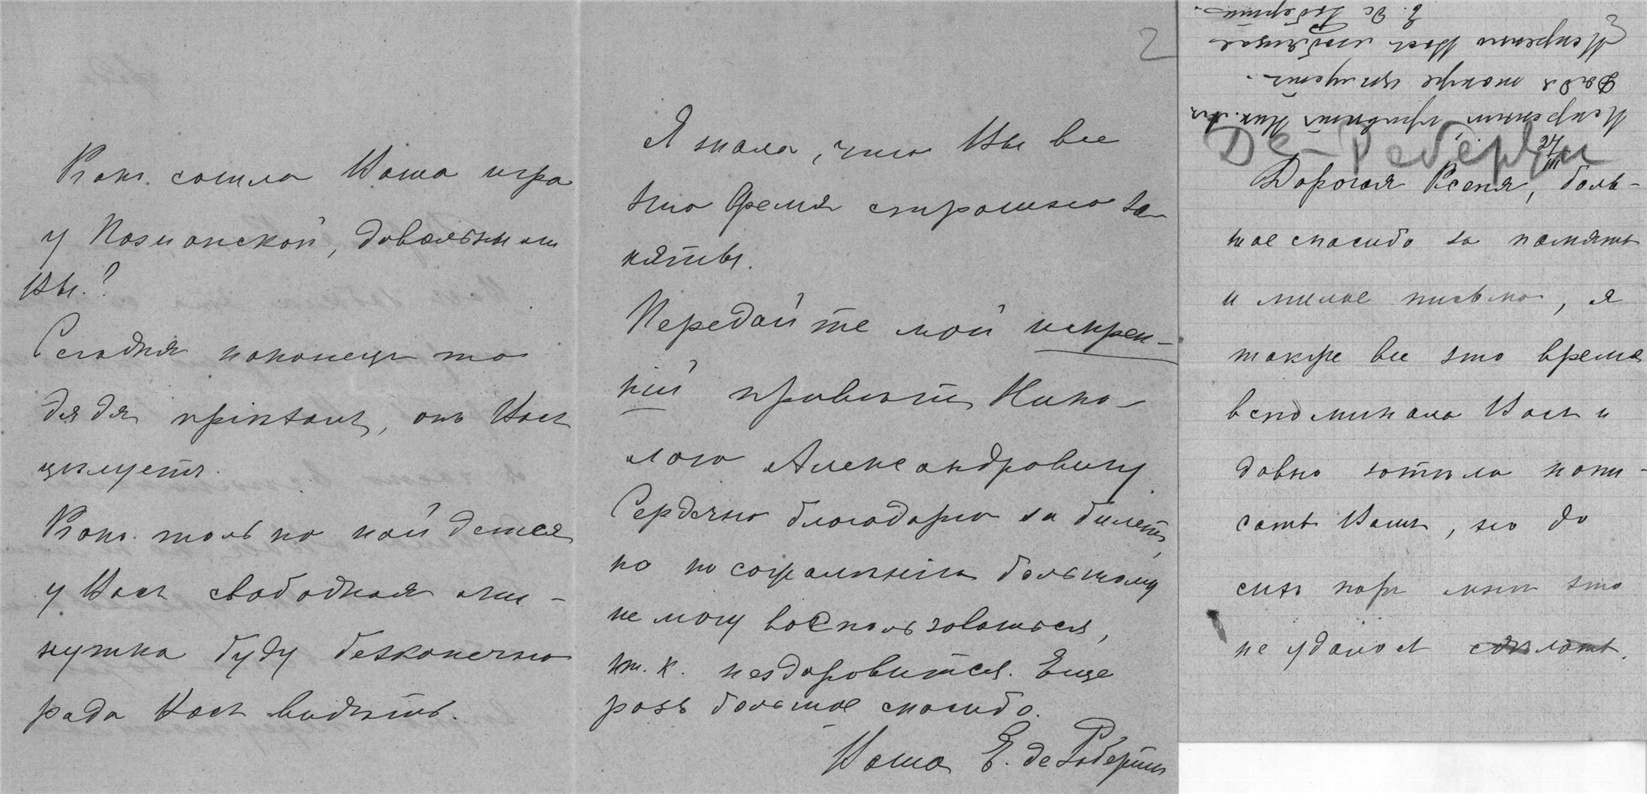 Какъ сошла Ваша игра
у Познанской, довольны ли
Вы?
Сегодня наконецъ то
дядя пріѣхалъ, онъ Васъ
цѣлуетъ.
Какъ только найдется
у Васъ свободная ми-
нутка буду безконечно
рада Васъ видѣть.
2
Я знала, что Вы все
это время страшно за-
няты.
Передайте мой искрен-
ній привѣтъ Нико-
лаю Александровичу
Сердечно благодарю за билетъ,
но по сожалѣнію большому
не могу воспользоваться,
т. к. нездоровится. Еще
разъ большое спасибо.
Ваша Е. де Роберти
3
Де-Роберти
Дорогая Ксеня, боль-
шое спасибо за память
и милое письмо, я
также все это время
вспоминала Васъ и
давно хотѣла напи-
сать Вамъ, но до
сихъ поръ мнѣ это
не удалось сдѣлать.
Искренній привѣтъ Ник. Ал.
Дядя также цѣлуетъ.
Искренно Васъ любящая
Е. Де Роберти.